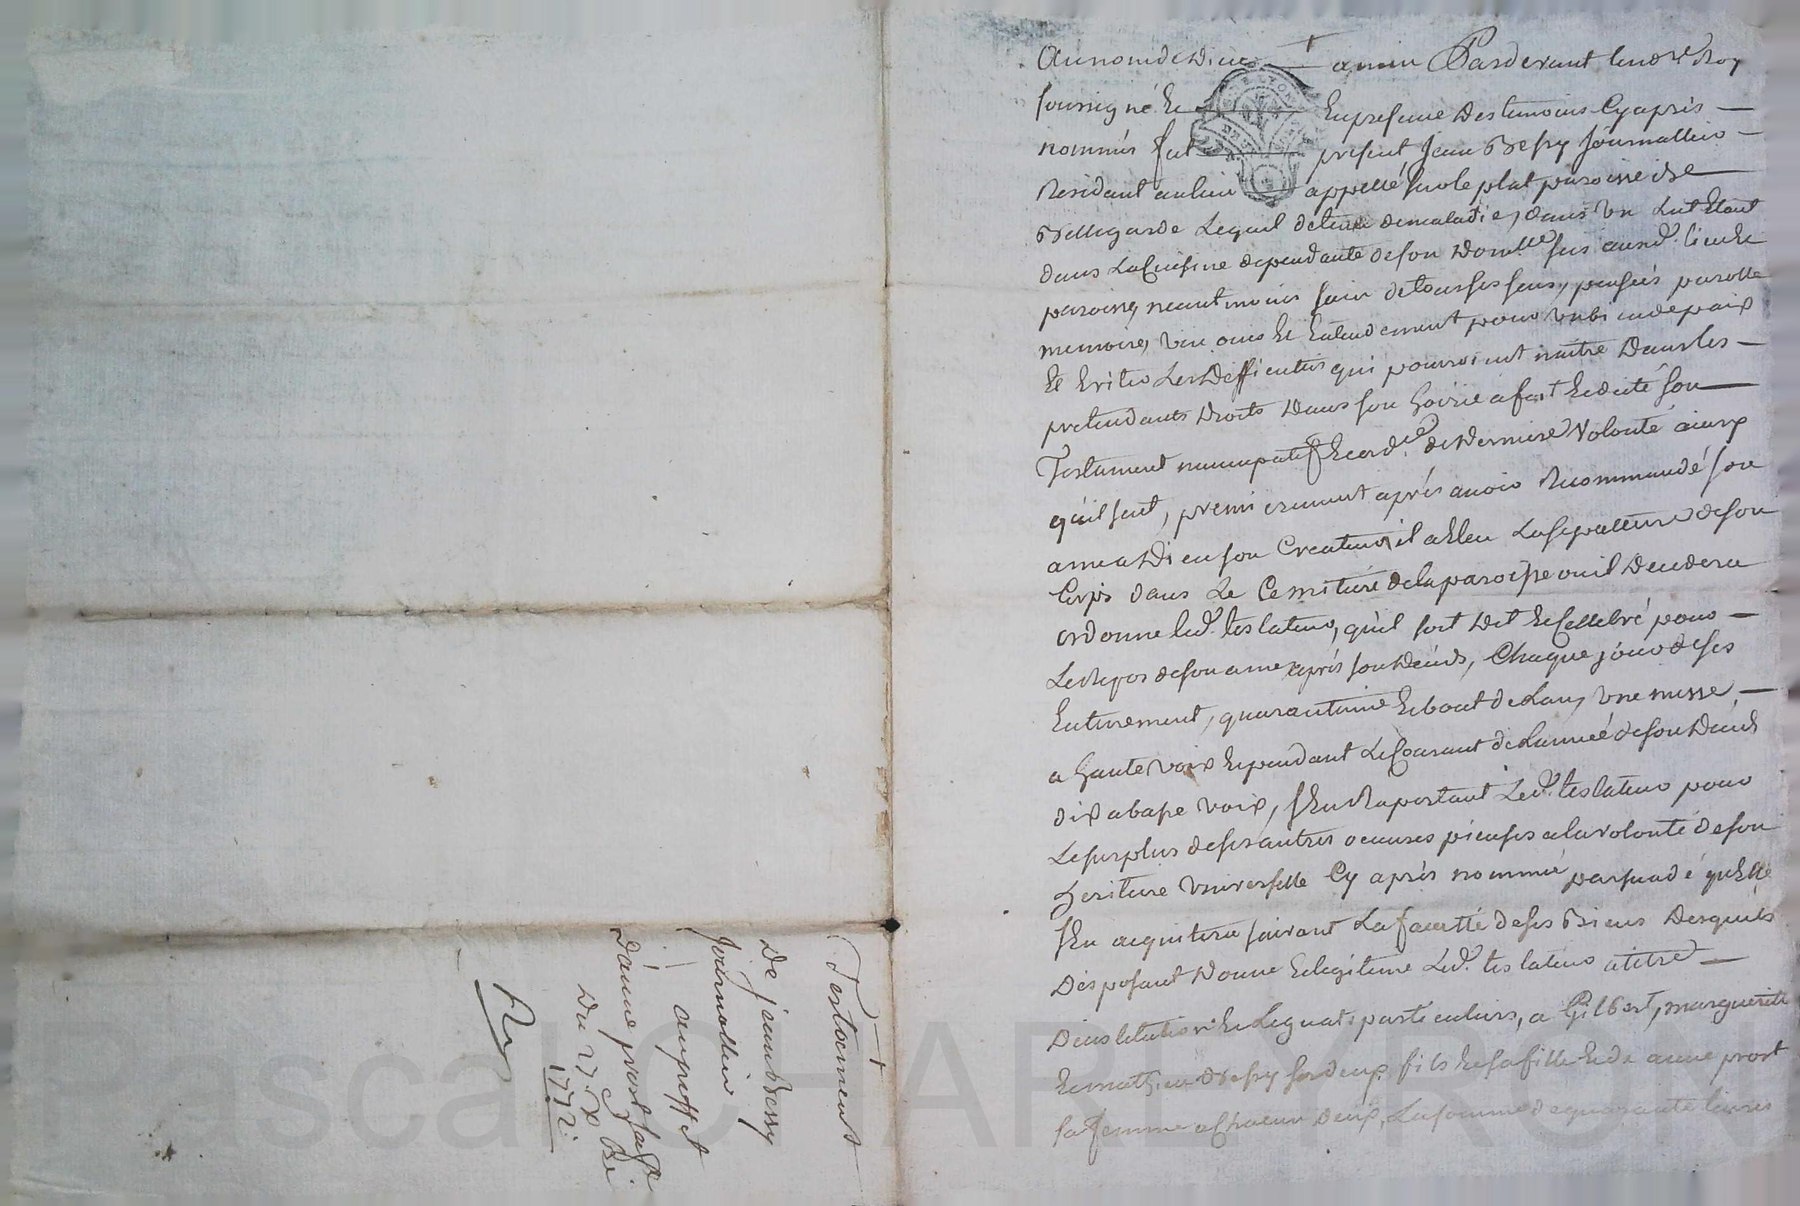 Au nom de Dieu amen Pardevant le no.re Roy
soussigné Et En presence Des temoins Cy après
nommés fut present Jean Bessy Journallier
Residant au lieu appellé sur le plat paroisse de
Bellegarde Lequel detenu de maladie, dans un Lit Etant
dans La Cuisine dependante de son Dom.lle sis au sud. lieu Et
paroisse, neantmoins sain de tous ses sens, pensées parolle
memoire, vue ouis Et Entendement pour vu bien de paix
Et Eviter Les Difficultés qui pourroient naitre Dans les
pretendants Droits Dans son hoirie a fait Et dicté son
Testament nuncupatif Et ord.ce de Derniere Volonté ainsy
qu'il suit, premierement après avoir Recommandé son
ame a Dieu son Createur, il a Eleu La sepulture de son
Corps dans Le Cemitiere de la paroisse ou il Decedera
ordonne led. testateur, qu'il soit Dit Et Cellebré pour
Le Repos de son ame après son Décés, Chaque jour de ses
Enterement, quarantaine Et bout de L'an, une messe
a haute voix Et pendant Le Courant de L'année de son Décés
dix a basse voix, s'En Raportant Led. testateur pour
Le surplus de ses autres oeuvres pieuses a la volonté de son
heritiere Universelle Cy après nommée, persuadé qu'Elle
s'En acquitera suivant La faculté de ses Biens Desquels
Disposant Donne Et legitime Led. testateur a titre
D'institution Et Legnats particuliers, a Gilbert, marguerite
Et mathieu Bessy ses deux fils Et sa fille Et de anne prost
sa femme a Chacun d'eux, La somme de quarante livres
Testament
De jean Bessy
journallier
au proffit
D'anne prost sa fe.
Du 27 X Bre
1772.